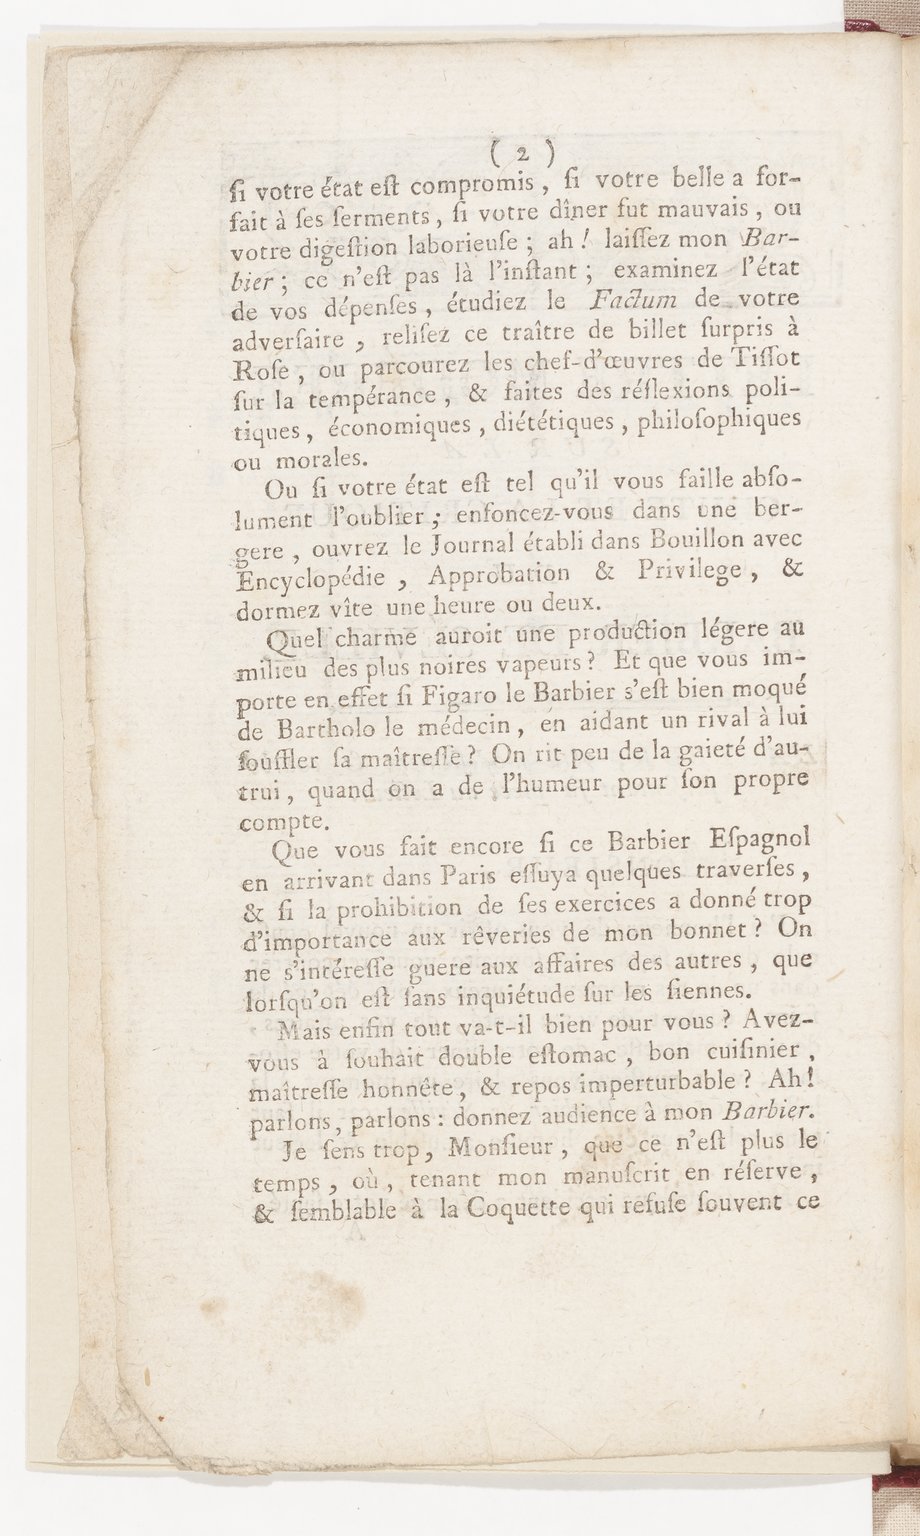 ( 2 )
ſi votre état eſt compromis, ſi votre belle a for-
fait à ſes ſerments, ſi votre dîner fut mauvais, ou
votre digeſtion laborieuſe ; ah ! laiſſez mon Bar-
bier ; ce n'eſt pas là l'inſtant ; examinez l'état
de vos dépenſes, étudiez le Factum de votre
adverſaire, reliſez ce traître de billet ſurpris à
Roſe, ou parcourez les chef-d'œuvres de Tiſſot
ſur la tempérance, & faites des réflexions poli-
tiques, économiques, diététiques, philoſophiques
ou morales.
Ou ſi votre état eſt tel qu'il vous faille abſo-
lument l'oublier ; enfoncez-vous dans une ber-
gere, ouvrez le Journal établi dans Bouillon avec
Encyclopédie, Approbation & Privilege, &
dormez vîte une heure ou deux.
Quel charme auroit une production légere au
milieu des plus noires vapeurs ? Et que vous im-
porte en effet ſi Figaro le Barbier s'eſt bien moqué
de Bartholo le médecin, en aidant un rival à lui
ſouffler ſa maîtreſſe ? On rit peu de la gaieté d'au-
trui, quand on a de l'humeur pour ſon propre
compte.
Que vous fait encore ſi ce Barbier Eſpagnol
en arrivant dans Paris eſſuya quelques traverſes,
& ſi la prohibition de ſes exercices a donné trop
d'importance aux rêveries de mon bonnet ? On
ne s'intéreſſe guere aux affaires des autres, que
lorſqu'on eſt ſans inquiétude ſur les ſiennes.
Mais enfin tout va-t-il bien pour vous ? Avez-
vous à ſouhait double eſtomac, bon cuiſinier,
maîtreſſe honnête, & repos imperturbable ? Ah !
parlons, parlons : donnez audience à mon Barbier.
Je ſens trop, Monſieur, que ce n'eſt plus le
temps, où, tenant mon manuſcrit en réſerve,
& ſemblable à la Coquette qui refuſe ſouvent ce